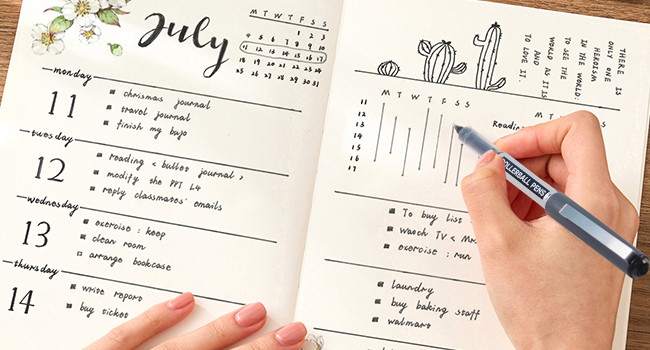 July
M T W T F S S
1 2 3
4 5 6 7 8 9 10
11 12 13 14 15 16 17
18 19 20 21 22 23 24
25 26 27 28 29 30 31
monday
11
chrismas journal
travel journal
finish my bujo
tuesday
12
reading < bullet journal >
modify the PPT L4
reply classmates' emails
wednesday
13
exercise : keep
clean room
arrange bookcase
thursday
14
write report
buy ticket
THERE IS
ONLY ONE
HEROISM
IN THE WORLD:
TO SEE THE
WORLD AS IT IS
AND
TO LOVE IT.
M T W T F S S
11
12
13
14
15
16
17
Reading
M T W T F S S
To buy list
watch TV < Mr.
exercise : run
laundry
buy baking staff
walmart
ROLLERBALL PENS